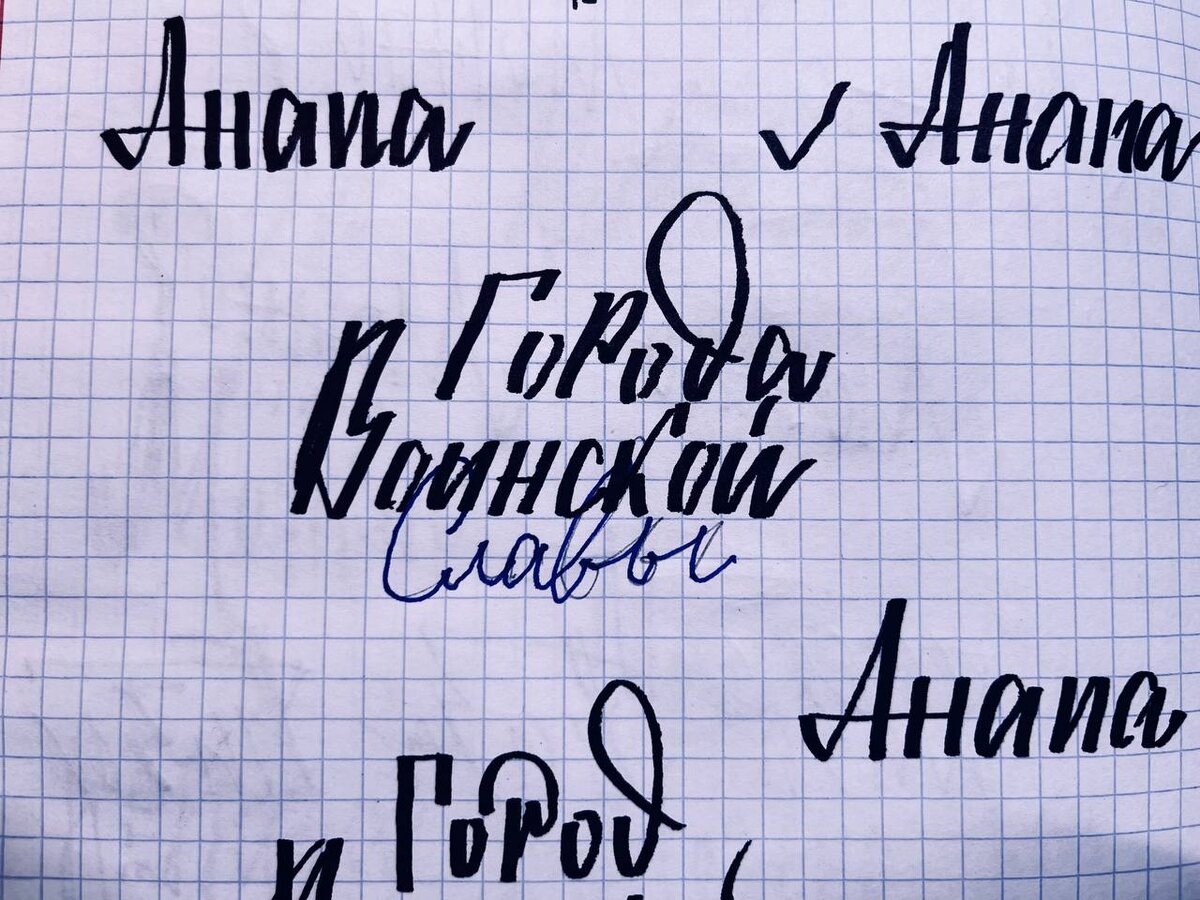 Анапа
✓ Анапа
Города
Воинской
Славы
Анапа
Город